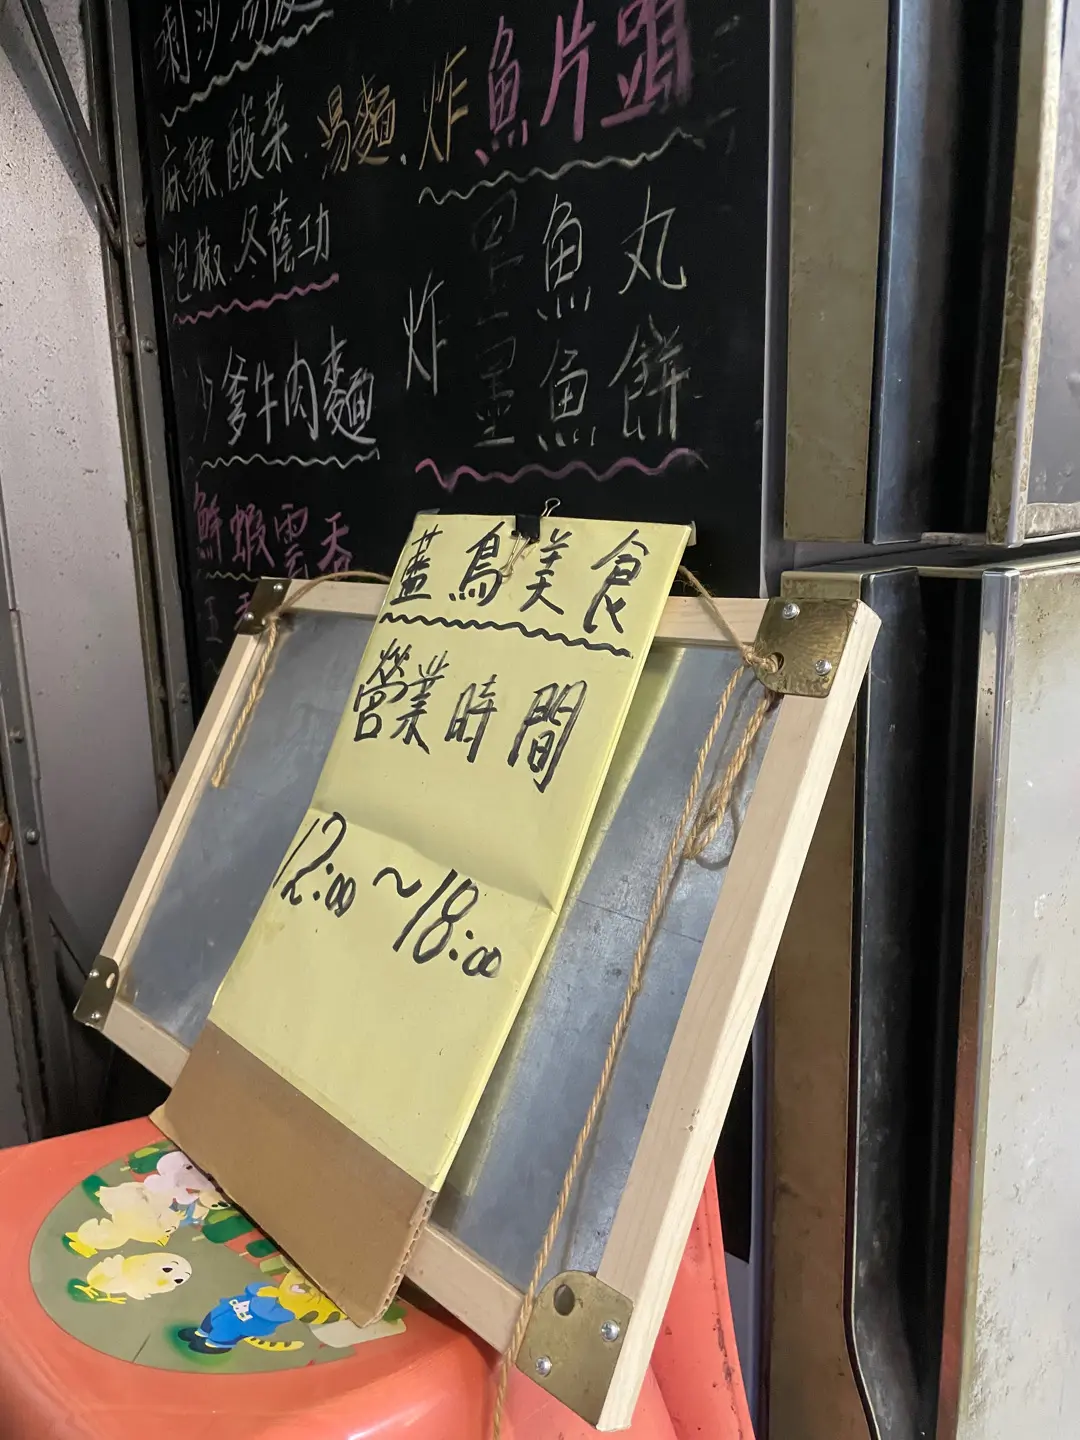 麻辣酸菜.易麵.
泡椒.冬蔭功
爹牛肉麵
鮮蝦雲吞
炸魚片頭
炸
墨魚丸
墨魚餅
藍鳥美食
營業時間
12:00~18:00